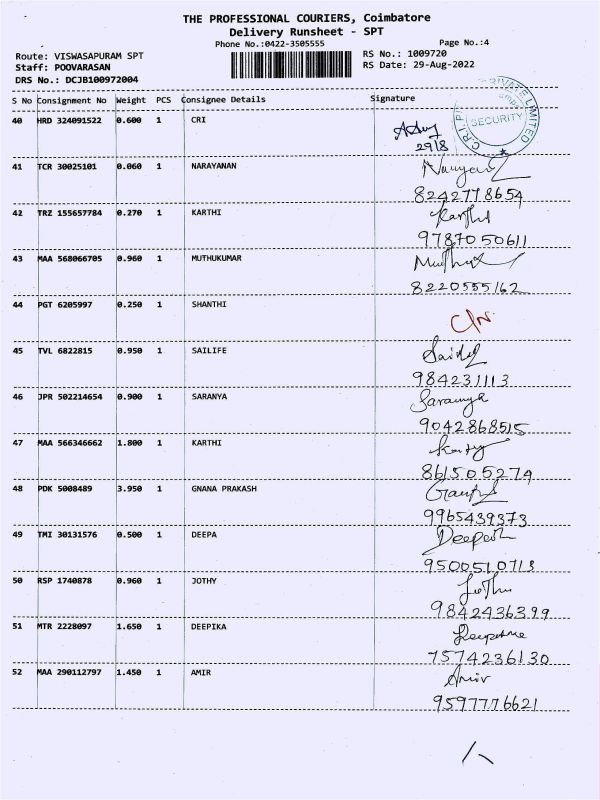 THE PROFESSIONAL COURIERS, Coimbatore
Delivery Runsheet - SPT
Phone No.:0422-3505555 Page No.:4
Route: VISWASAPURAM SPT RS No.: 1009720
Staff: POOVARASAN RS Date: 29-Aug-2022
DRS No.: DCJB100972004
S No Consignment No Weight PCS Consignee Details Signature
PRIVATE LIMITED
SECURITY
C.R.I.
40 HRD 324091522 0.600 1 CRI
29/8
41 TCR 30025101 0.060 1 NARAYANAN
8242778654
42 TRZ 155657784 0.270 1 KARTHI Karthi
9787050611
43 MAA 568066705 0.960 1 MUTHUKUMAR
8220555162
44 PGT 6205997 0.250 1 SHANTHI
45 TVL 6822815 0.950 1 SAILIFE
984231113
46 JPR 502214654 0.900 1 SARANYA Saranya
9042868515
47 MAA 566346662 1.800 1 KARTHI
861505274
48 PDK 5008489 3.950 1 GNANA PRAKASH
9965439373
49 TMI 30131576 0.500 1 DEEPA
9500510713
50 RSP 1740878 0.960 1 JOTHY
9842436399
51 MTR 2228097 1.650 1 DEEPIKA
7574236130
52 MAA 290112797 1.450 1 AMIR Amir
9597776621